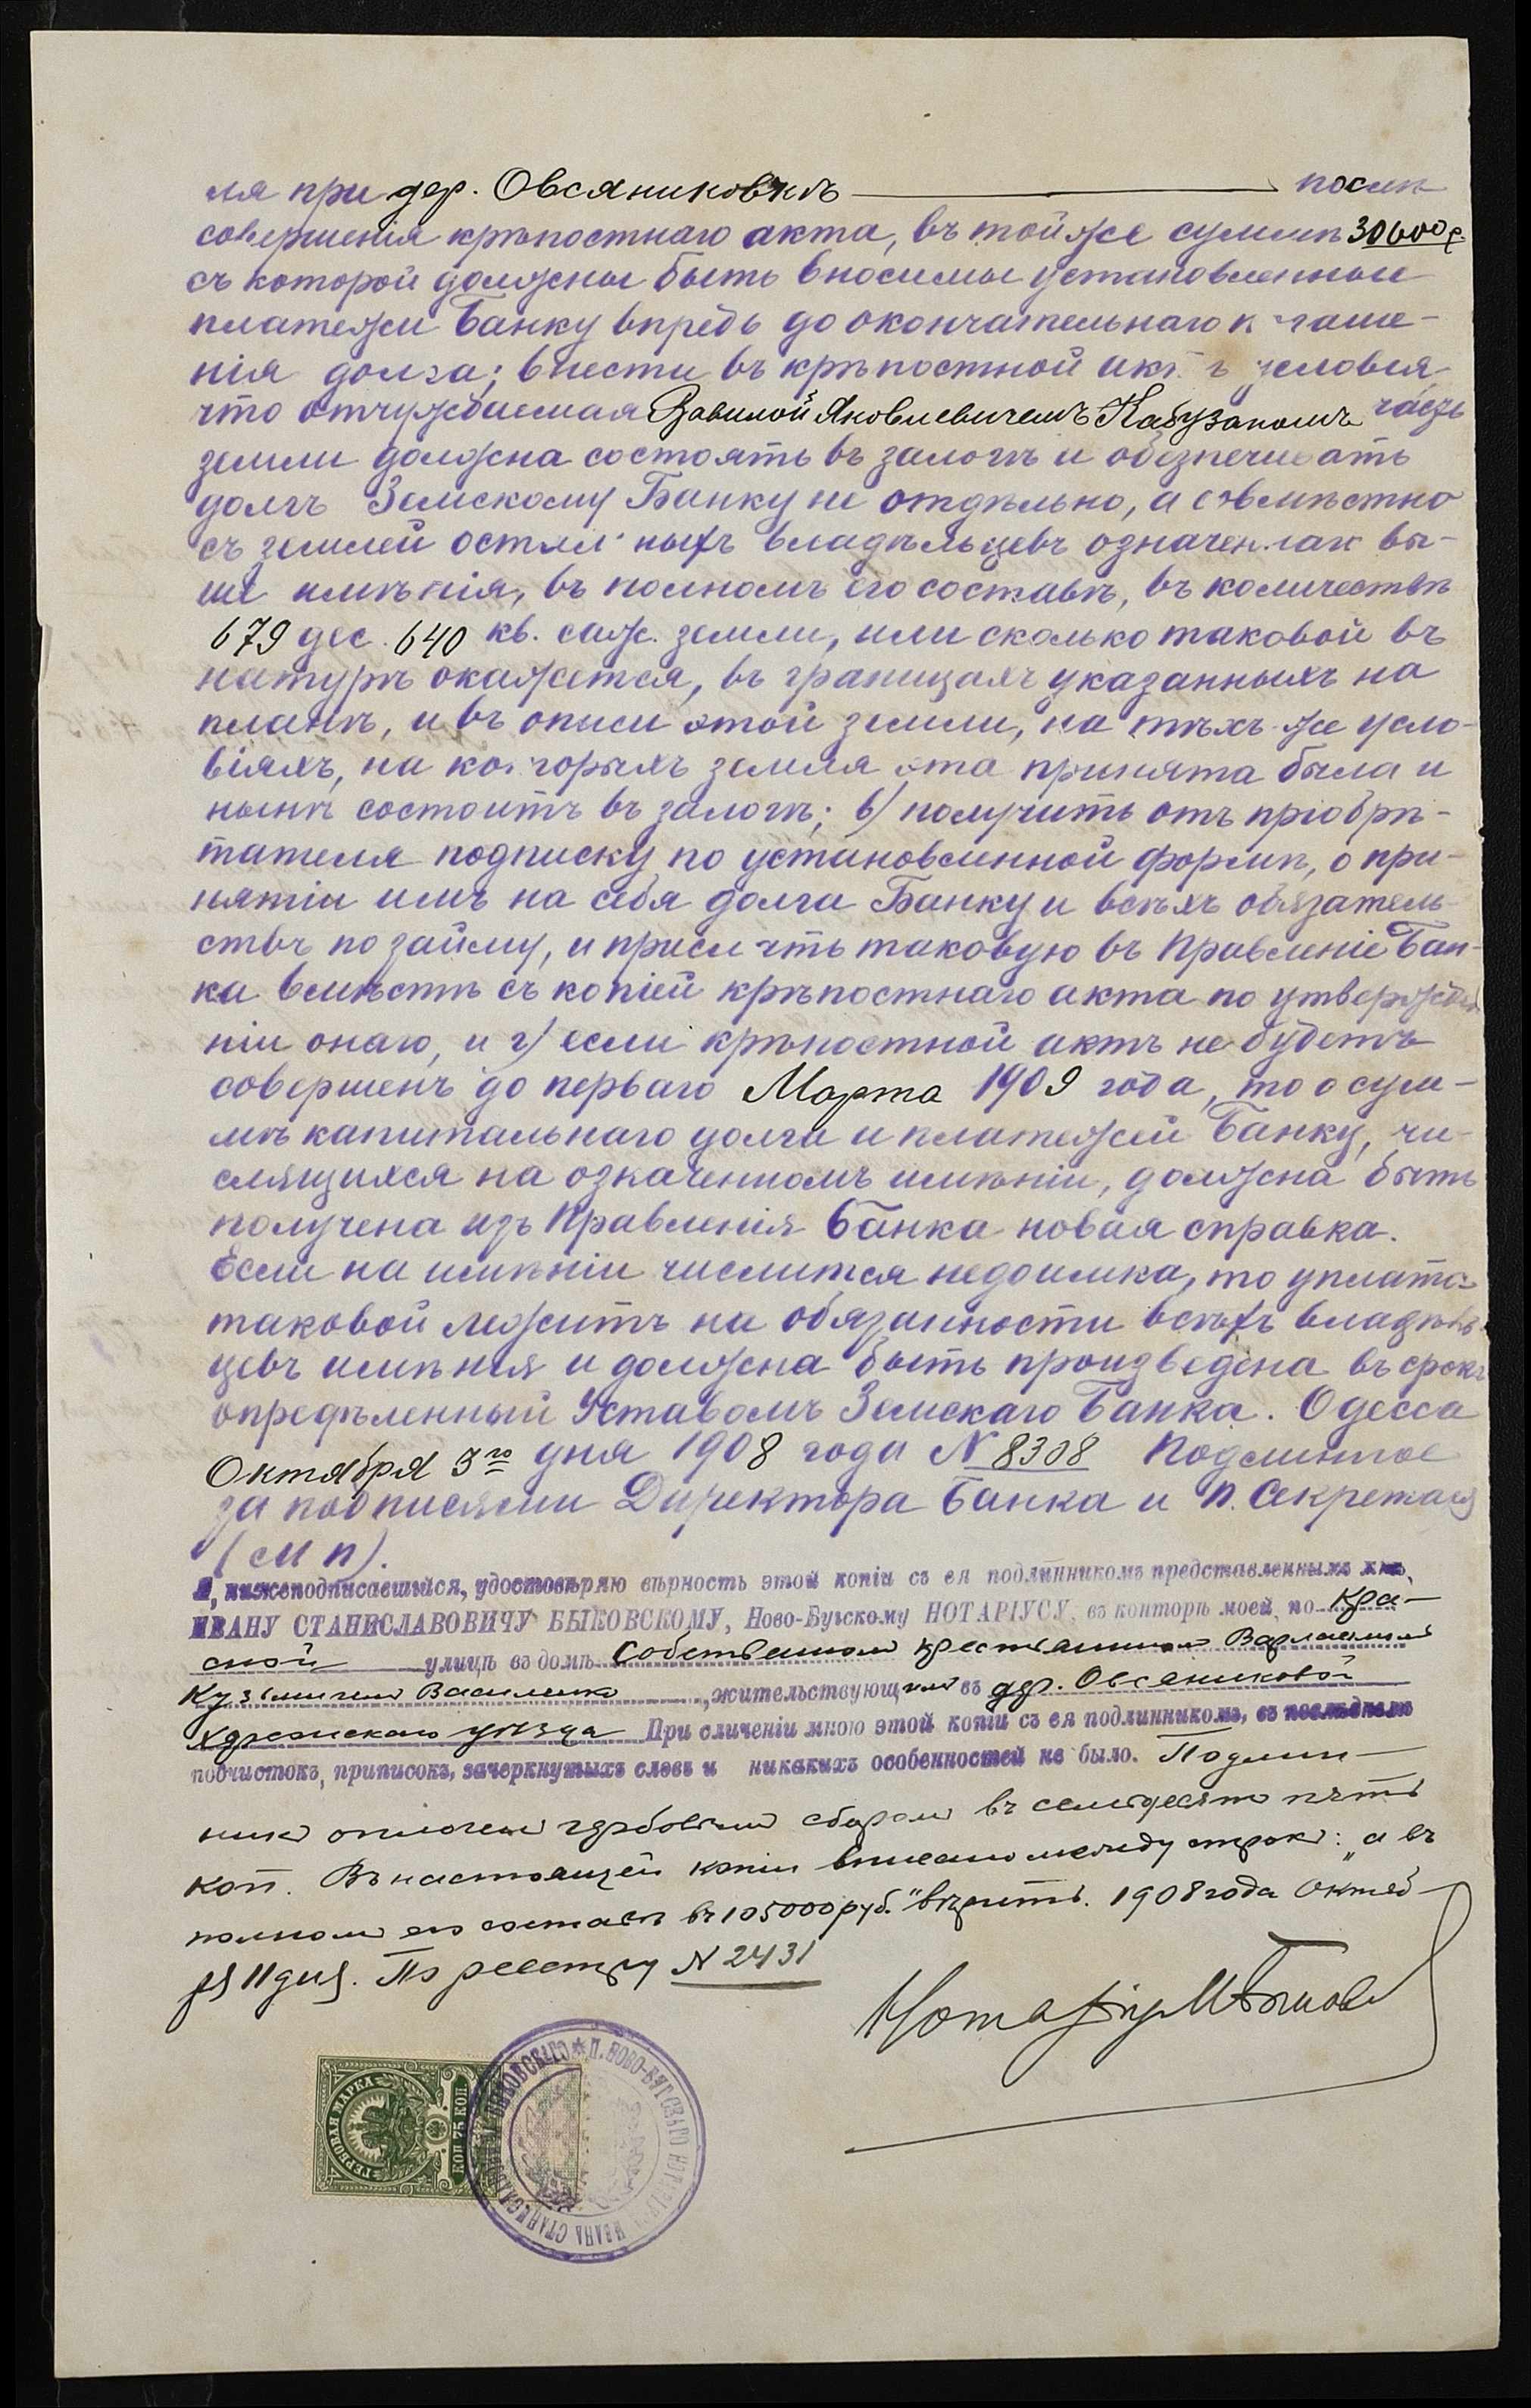 ля при дер. Овсяниковкѣ послѣ
совершенія крѣпостнаго акта, въ той же суммѣ 30600 р.
съ которой должны быть вносимы установленные
платежи Банку впредь до окончательнаго п гаше-
нія долга; внести въ крѣпостной ак ъ условія
что отчуждаемая Вавилой Яковлевичемъ Кабузаномъ часть
земли должна состоять въ залогѣ и обезпечивать
долгъ Земскому Банку не отдѣльно, а совмѣстно
съ землей остал ныхъ владѣльцевъ означеннаго вы-
ше имѣнія, въ полномъ его составѣ, въ количествѣ
679 дес. 640 кв. саж. земли, или сколько таковой въ
натурѣ окажется, въ границахъ указанныхъ на
планѣ, и въ описи этой земли, на тѣхъ же усло-
віяхъ, на которыхъ земля эта принята была и
нынѣ состоитъ въ залогѣ; в) получить отъ пріобрѣ-
тателя подписку по установленной формѣ, о при-
нятіи имъ на себя долга Банку и всѣхъ обязатель-
ствъ по займу, и присл ть таковую въ Правленіе Бан-
ка вмѣстѣ съ копіей крѣпостнаго акта по утвержде-
ніи онаго, и г) если крѣпостной актъ не будетъ
совершенъ до перваго Марта 1909 года, то о сум-
мѣ капитальнаго долга и платежей Банку, чи-
слящихся на означенномъ имѣніи, должна быть
получена изъ Правленія Банка новая справка.
Если на имѣніи числится недоимка, то уплата
таковой лежитъ на обязанности всѣхъ владѣль-
цевъ имѣнія и должна быть произведена въ срокъ
опредѣленный Уставомъ Земскаго Банка. Одесса
Октября 3го дня 1908 года N 8308 Подлинное
за подписями Директора Банка и П. Секретаря
(М П).
Я, нижеподписавшійся, удостовѣряю вѣрность этой копіи съ ея подлинникомъ представленныхъ мнѣ,
ИВАНУ СТАНИСЛАВОВИЧУ БЫКОВСКОМУ, Ново-Бугскому НОТАРІУСУ, въ конторѣ моей, по Кра-
сной улицѣ въ домѣ Собственномъ крестьяниномъ Варлаамомъ
Кузьмичемъ Василенко, жительствующимъ въ дер. Овсяниковой
Херсонскаго уѣзда При сличеніи мною этой копіи съ ея подлинникомъ, въ послѣднемъ
подчистокъ, приписокъ, зачеркнутыхъ словъ и никакихъ особенностей не было. Подлин-
никъ оплоченъ гербовымъ сборомъ въ семьдесятъ пять
коп. Въ настоящей копіи вписано между строкъ: „а въ
полномъ его составѣ въ 105000 руб." вѣрить. 1908 года Октяб-
ря 11 дня. По реестру N 2431
Нотаріусъ
ГЕРБОВАЯ МАРКА
КОП 75 КОП.
П. НОВО-БУГСКАГО НОТАРІУСА ИВАНА СТАНИСЛАВОВИЧА БЫКОВСКАГО